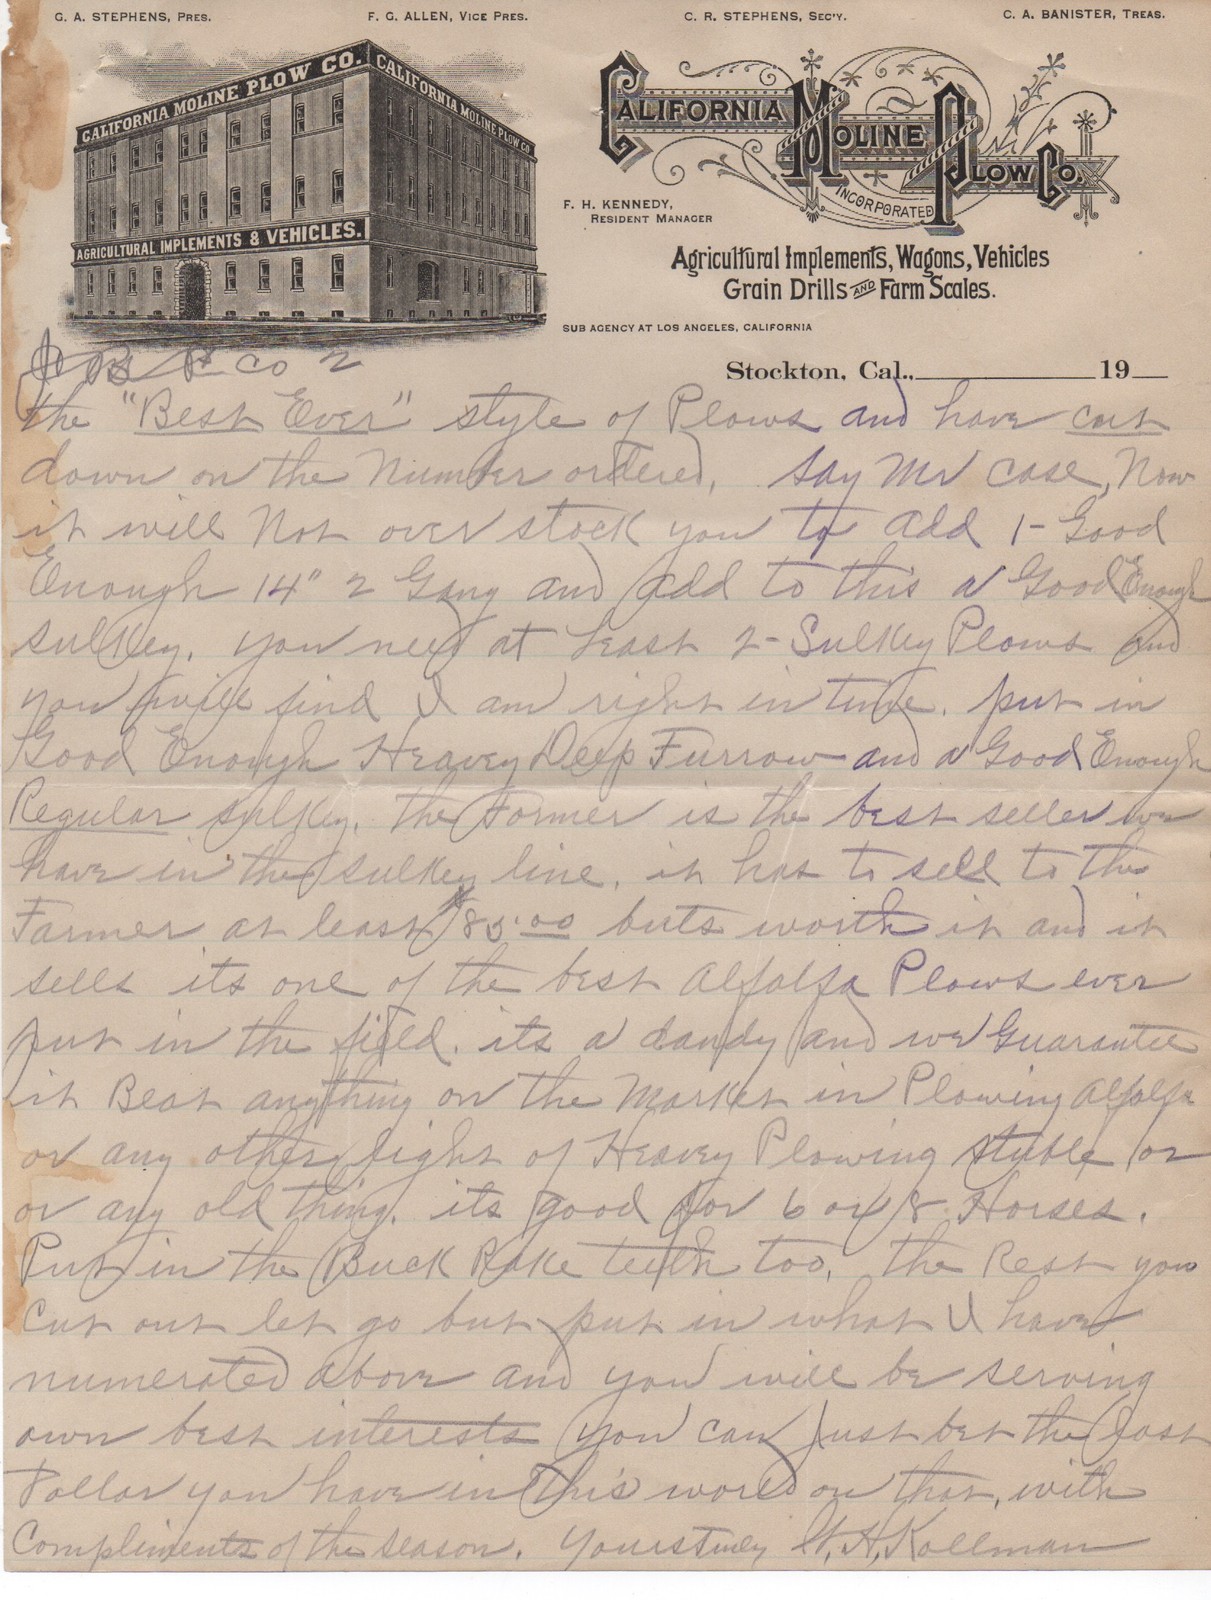 G. A. STEPHENS, PRES. F. G. ALLEN, VICE PRES. C. R. STEPHENS, SEC'Y. C. A. BANISTER, TREAS.
CALIFORNIA MOLINE PLOW CO. CALIFORNIA MOLINE PLOW CO
AGRICULTURAL IMPLEMENTS & VEHICLES.
CALIFORNIA MOLINE PLOW CO.
INCORPORATED
F. H. KENNEDY,
RESIDENT MANAGER
Agricultural Implements, Wagons, Vehicles
Grain Drills AND Farm Scales.
SUB AGENCY AT LOS ANGELES, CALIFORNIA
Stockton, Cal., 19
Co 2
the "Best Ever" style of Plows and have cut
down on the Number ordered, say Mr Case, Now
it will Not over stock you to add 1- Good
Enough 14" 2 Gang and add to this a Good Enough
sulkey. you need at least 2- Sulkey Plows and
you will find I am right in time. put in
Good Enough Heavey Deep Furrow and a Good Enough
Regular sulkey. the Former is the best seller we
have in the sulkey line. it has to sell to the
Farmer at least $85.00 buts worth it and it
sells its one of the best Alfalfa Plows ever
put in the field. its a dandy and we Guarantee
it Beat anything on the Market in Plowing Alfalfa
or any other light of Heavey Plowing stuble or
or any old thing. its good for 6 or 8 Horses.
Put in the Buck Rake teeth too. the Rest you
cut out let go but put in what I have
numerated above and you will be serving
own best interests you can just bet the last
Dollar you have in this world on that, with
Compliments of the season. yours truly W. H. Kollman